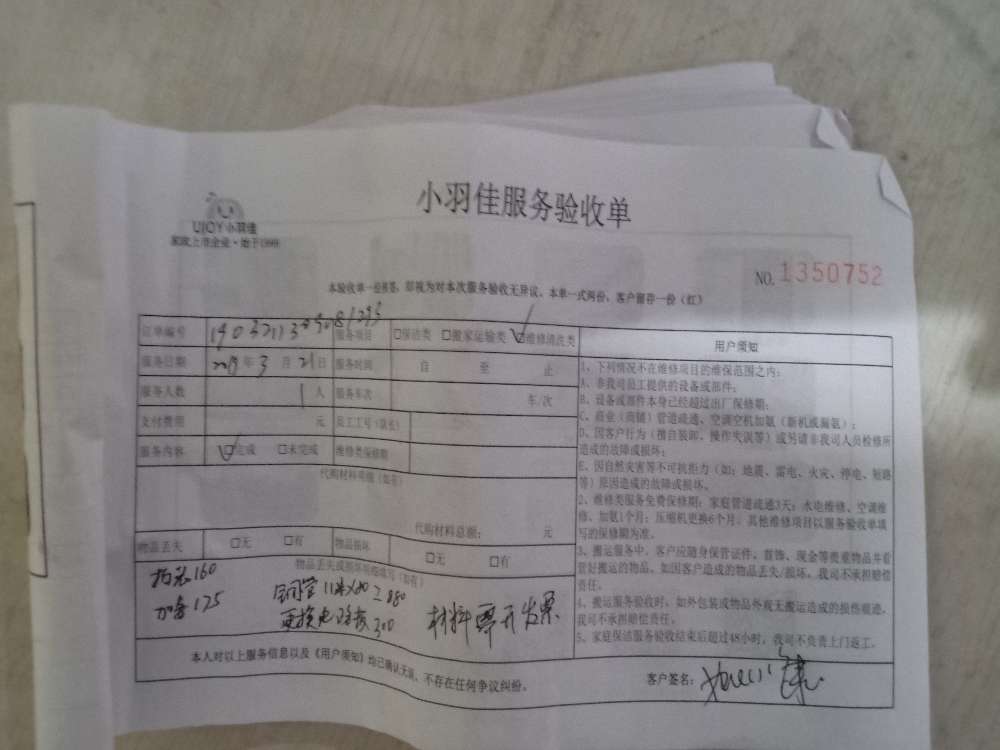 小羽佳服务验收单
UJOY小羽佳
家政上市企业·始于1999
NO.1350752
本验收单一经签署，即视为对本次服务验收无异议。本单一式两份，客户留存一份（红）
订单编号 服务项目 □保洁类 □搬家运输类 ☑维修清洗类
服务日期 2019年3月21日 服务时间 自 至 止
服务人数 1人 服务车次 车/次
支付费用 元 员工工号(队长)
服务内容 ☑完成 □未完成 维修类保修期
代购材料明细（如有）
代购材料总额： 元
物品丢失 □无 □有 物品损坏 □无 □有
物品丢失或损坏明细填写（如有）
160
加氟 125
铜管 11米x80=880
更换电路板 300
材料票开发票
本人对以上服务信息以及《用户须知》均已确认无误，不存在任何争议纠纷。
客户签名：
用户须知
1、下列情况不在维修项目的维保范围之内：
A、非我司员工提供的设备或部件；
B、设备或部件本身已经超过出厂保修期；
C、商业（商铺）管道疏通、空调空机加氨（新机或漏氨）；
D、因客户行为（擅自装卸、操作失误等）或另请非我司人员检修所
造成的故障或损坏；
E、因自然灾害等不可抗拒力（如：地震、雷电、火灾、停电、短路
等）原因造成的故障或损坏。
2、维修类服务免费保修期：家庭管道疏通3天；水电维修、空调维
修、加氨1个月；压缩机更换6个月。其他维修项目以服务验收单填
写的保修期为准。
3、搬运服务中，客户应随身保管证件、首饰、现金等贵重物品并看
管好搬运的物品，如因客户造成的物品丢失/损坏，我司不承担赔偿
责任。
4、搬运服务验收时，如外包装或物品外观无搬运造成的损伤痕迹，
我司不承担赔偿责任。
5、家庭保洁服务验收结束后超过48小时，我司不负责上门返工。